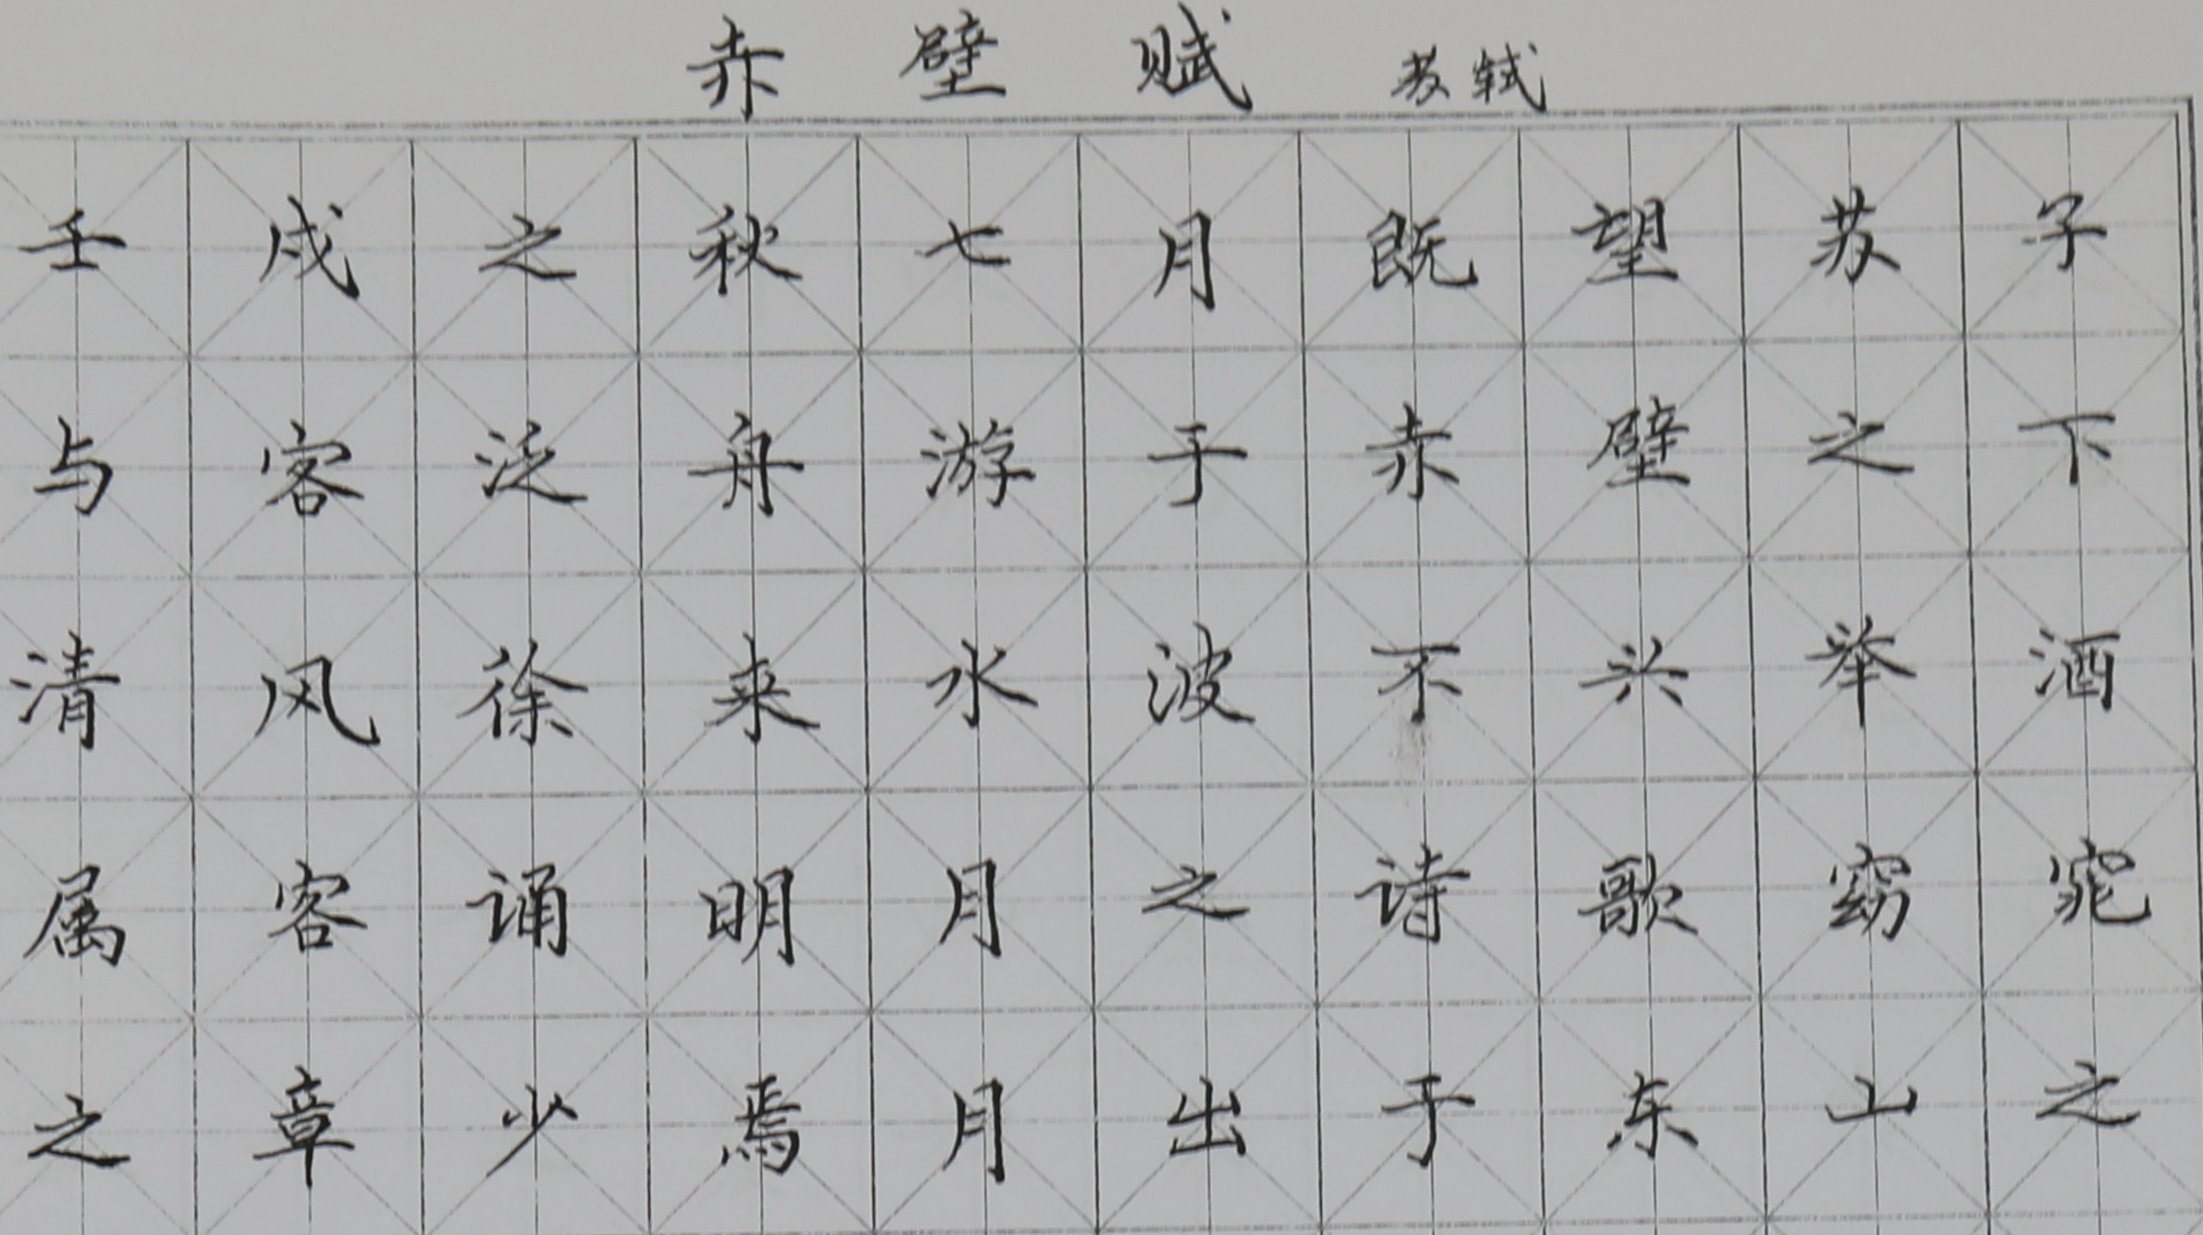 赤壁赋 苏轼
壬戌之秋七月既望苏子
与客泛舟游于赤壁之下
清风徐来水波不兴举酒
属客诵明月之诗歌窈窕
之章少焉月出于东山之